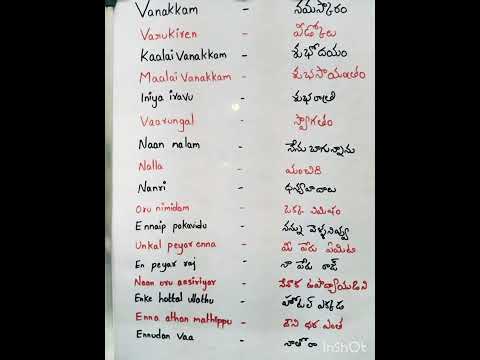 Vanakkam - నమస్కారం
Varukiren - వీడ్కోలు
Kaalai Vanakkam - శుభోదయం
Maalai Vanakkam - శుభసాయంత్రం
Iniya iravu - శుభరాత్రి
Vaarungal - స్వాగతం
Naan nalam - నేను బాగున్నాను
Nalla - మంచిది
Nanri - ధన్యవాదాలు
Oru nimidam - ఒకక నిమిషం
Ennaip pokavidu - నన్ను వెళ్ళనివ్వు
Unkal peyar enna - మీ పేరు ఏమిటి
En peyar raj - నా పేరు రాజ్
Naan oru aasiriyar - నేనొక ఉపాధ్యాయుడిని
Enke hottal ullathu - హోటల్ ఎక్కడ
Enna athan mathippu - దీని ధర ఎంత
Ennudan Vaa - నాతో రా
InShOt